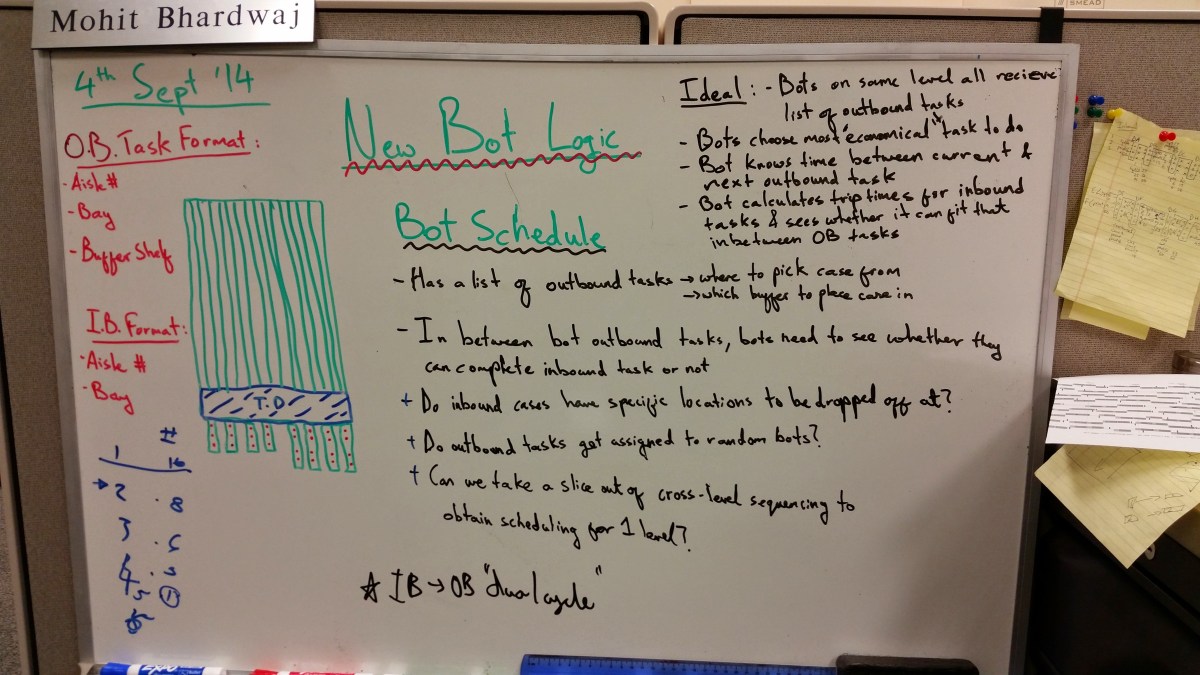 Mohit Bhardwaj
SMEAD
4th Sept '14
O.B. Task Format:
- Aisle #
- Bay
- Buffer Shelf
I.B. Format:
- Aisle #
- Bay
#
1 16
→ 2 . 8
3 .
4 .
5 ①
T.D
New Bot Logic
Bot Schedule
- Has a list of outbound tasks → where to pick case from
→ which buffer to place case in
- In between bot outbound tasks, bots need to see whether they
can complete inbound task or not
+ Do inbound cases have specific locations to be dropped off at?
+ Do outbound tasks get assigned to random bots?
+ Can we take a slice out of cross-level sequencing to
obtain scheduling for 1 level?
☆ IB → OB "dual cycle"
Ideal: - Bots on same level all recieve
list of outbound tasks
- Bots choose most "economical" task to do
- Bot knows time between current &
next outbound task
- Bot calculates trip times for inbound
tasks & sees whether it can fit that
inbetween OB tasks
EXPO